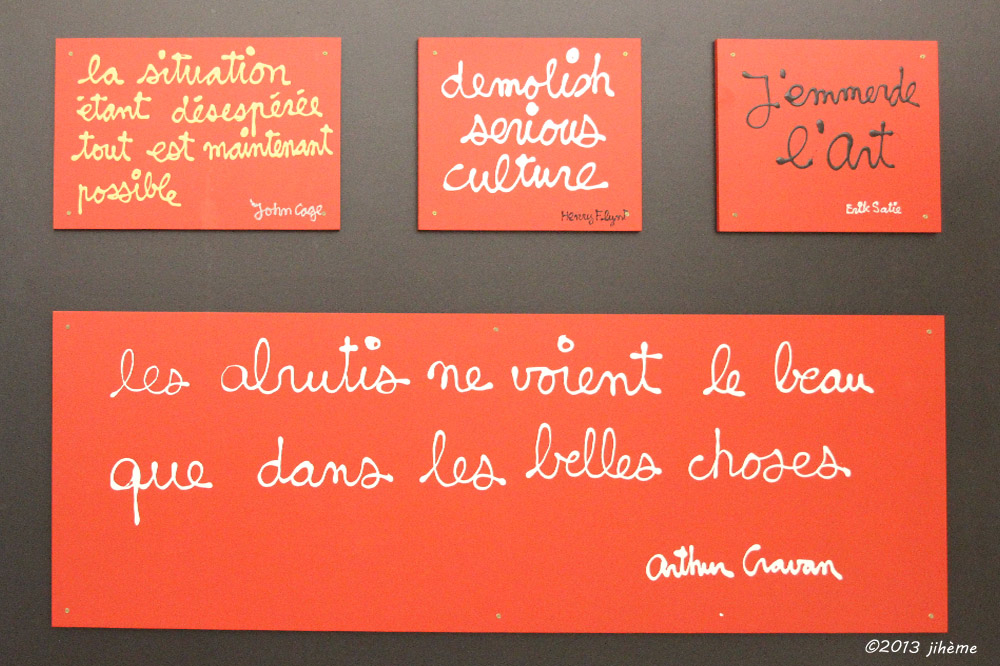 la situation
étant désespérée
tout est maintenant
possible
John Cage
demolish
serious
culture
Henry Flynt
J'emmerde
l'art
Erik Satie
les abrutis ne voient le beau
que dans les belles choses
Arthur Cravan
©2013 jihème